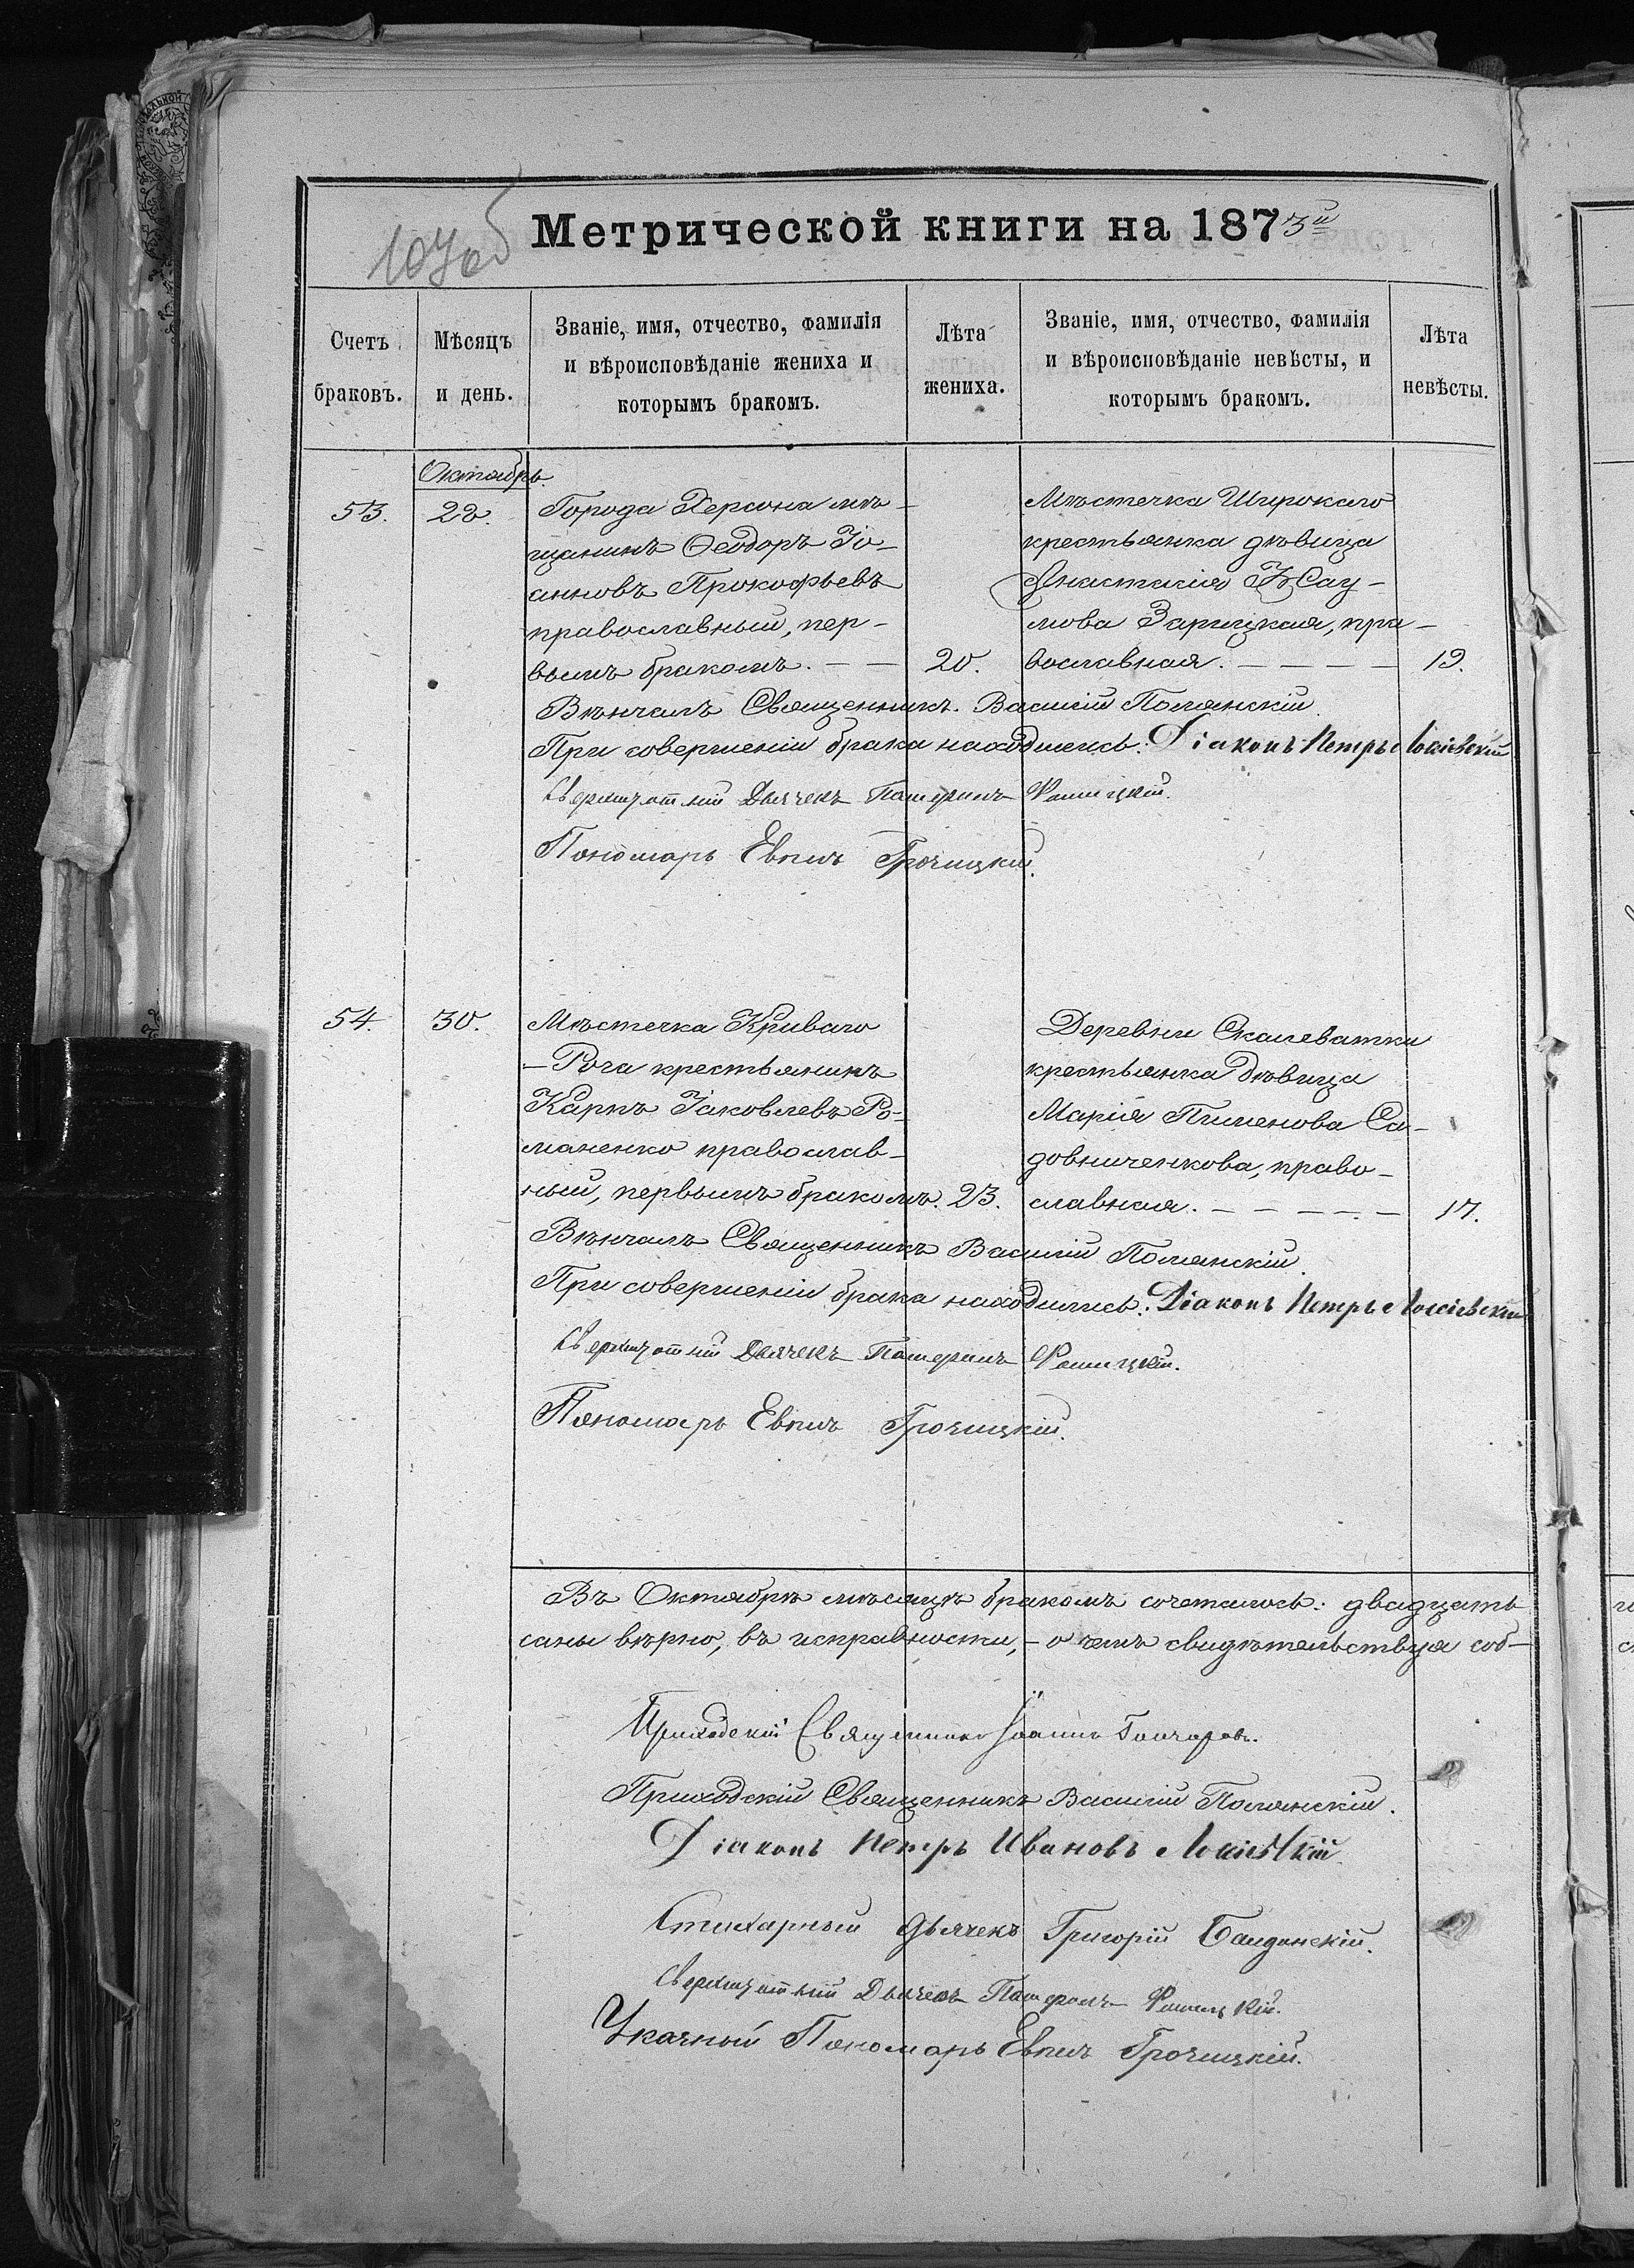 Метрической книги на 1873й
107об
Счетъ браковъ.
Мѣсяцъ и день.
Званіе, имя, отчество, фамилія и вѣроисповѣданіе жениха и которымъ бракомъ.
Лѣта жениха.
Званіе, имя, отчество, фамилія и вѣроисповѣданіе невѣсты, и которымъ бракомъ.
Лѣта невѣсты.
Октябрь.
53.
22.
Города Херсона мѣ-
щанинъ Ѳеодоръ Іо-
анновъ Прокофьевъ
православный, пер-
вымъ бракомъ. — —
20.
Мѣстечка Широкаго
крестьянка дѣвица
Анастасія
мова Зарицкая, пра-
вославная. — — — —
19.
Вѣнчалъ Священникъ. Василій Полянскій.
При совершеніи брака находились: Діаконъ Петръ
Сверхштатный Дьячекъ
Пономарь
54.
30.
Мѣстечка Криваго
-Рога крестьянинъ
Карпъ Іаковлевъ Ро-
маненко православ-
ный, первымъ бракомъ.
23.
Деревни Скалеватки
крестьянка дѣвица
Марія Пименова Са-
довниченкова, право-
славная. — — — — —
17.
Вѣнчалъ Священникъ Василій Полянскій.
При совершеніи брака находились: Діаконъ Петръ
Сверхштатный Дьячекъ
Пономарь
Въ Октябрѣ мѣсяцѣ бракомъ сочеталось: двадцать
саны вѣрно, въ исправности, — о чемъ свидѣтельствуя соб-
Приходскій Священникъ Іоаннъ Гончаровъ.
Приходскій Священникъ Василій Полянскій.
Діаконъ Петръ Ивановъ
Стихарный дьячекъ Григорій
Сверхштатный Дьячекъ
Указный Пономарь